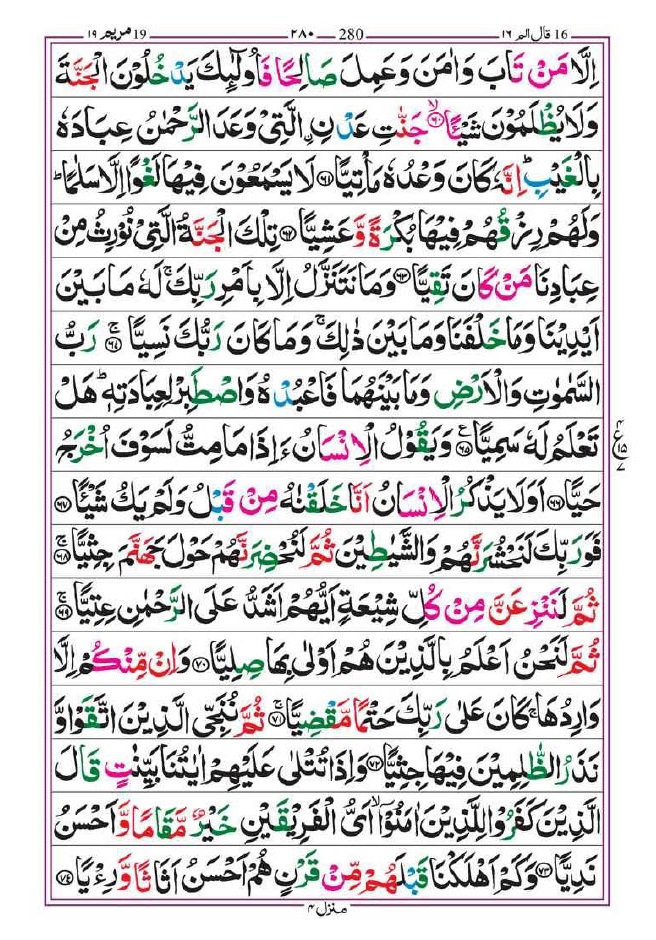 19 مريم ١٩ 280 ٢٨٠ 16 قال الم ١٦
اِلَّا مَنْ تَابَ وَاٰمَنَ وَعَمِلَ صَالِحًا فَاُولٰٓئِكَ يَدْخُلُوْنَ الْجَنَّةَ
وَلَا يُظْلَمُوْنَ شَيْـًٔا ۙ﴿۶۰﴾ جَنّٰتِ عَدْنِ ۨالَّتِيْ وَعَدَ الرَّحْمٰنُ عِبَادَهٗ
بِالْغَيْبِ ؕ اِنَّهٗ كَانَ وَعْدُهٗ مَاْتِيًّا ﴿۶۱﴾ لَا يَسْمَعُوْنَ فِيْهَا لَغْوًا اِلَّا سَلٰمًا ؕ
وَلَهُمْ رِزْقُهُمْ فِيْهَا بُكْرَةً وَّعَشِيًّا ﴿۶۲﴾ تِلْكَ الْجَنَّةُ الَّتِيْ نُوْرِثُ مِنْ
عِبَادِنَا مَنْ كَانَ تَقِيًّا ﴿۶۳﴾ وَمَا نَتَنَزَّلُ اِلَّا بِاَمْرِ رَبِّكَ ۚ لَهٗ مَا بَيْنَ
اَيْدِيْنَا وَمَا خَلْفَنَا وَمَا بَيْنَ ذٰلِكَ ۚ وَمَا كَانَ رَبُّكَ نَسِيًّا ۚ﴿۶۴﴾ رَبُّ
السَّمٰوٰتِ وَالْاَرْضِ وَمَا بَيْنَهُمَا فَاعْبُدْهُ وَاصْطَبِرْ لِعِبَادَتِهٖ ؕ هَلْ
تَعْلَمُ لَهٗ سَمِيًّا ﴿۶۵﴾ وَيَقُوْلُ الْاِنْسَانُ ءَاِذَا مَا مِتُّ لَسَوْفَ اُخْرَجُ
حَيًّا ﴿۶۶﴾ اَوَلَا يَذْكُرُ الْاِنْسَانُ اَنَّا خَلَقْنٰهُ مِنْ قَبْلُ وَلَمْ يَكُ شَيْـًٔا ﴿۶۷﴾
فَوَرَبِّكَ لَنَحْشُرَنَّهُمْ وَالشَّيٰطِيْنَ ثُمَّ لَنُحْضِرَنَّهُمْ حَوْلَ جَهَنَّمَ جِثِيًّا ۚ﴿۶۸﴾
ثُمَّ لَنَنْزِعَنَّ مِنْ كُلِّ شِيْعَةٍ اَيُّهُمْ اَشَدُّ عَلَى الرَّحْمٰنِ عِتِيًّا ۚ﴿۶۹﴾
ثُمَّ لَنَحْنُ اَعْلَمُ بِالَّذِيْنَ هُمْ اَوْلٰى بِهَا صِلِيًّا ﴿۷۰﴾ وَاِنْ مِّنْكُمْ اِلَّا
وَارِدُهَا ۚ كَانَ عَلٰى رَبِّكَ حَتْمًا مَّقْضِيًّا ۚ﴿۷۱﴾ ثُمَّ نُنَجِّي الَّذِيْنَ اتَّقَوْا وَّ
نَذَرُ الظّٰلِمِيْنَ فِيْهَا جِثِيًّا ﴿۷۲﴾ وَاِذَا تُتْلٰى عَلَيْهِمْ اٰيٰتُنَا بَيِّنٰتٍ قَالَ
الَّذِيْنَ كَفَرُوْا لِلَّذِيْنَ اٰمَنُوْٓا ۙ اَيُّ الْفَرِيْقَيْنِ خَيْرٌ مَّقَامًا وَّاَحْسَنُ
نَدِيًّا ﴿۷۳﴾ وَكَمْ اَهْلَكْنَا قَبْلَهُمْ مِّنْ قَرْنٍ هُمْ اَحْسَنُ اَثَاثًا وَّرِءْيًا ﴿۷۴﴾
٤ ع ١٥ ٧
منزل ٤